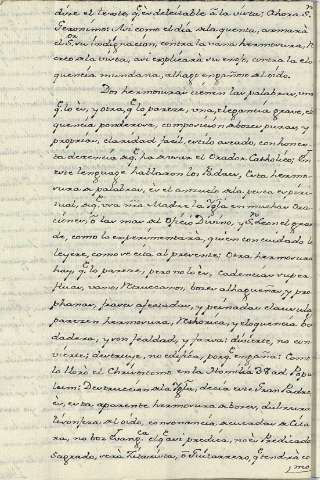 dize el texto, q.e es delectable a la vista: Ahora S.
Geronimo: Assi como el dia de la quenta, armarà
el S.or su indignacion, contra la vana hermosura, q.
creò a la vista, assi explicarà su enojo, contra la elo
quencia mundana, alhago engañoso al oido.
Dos hermosuras tienen las palabras, una
q.e lo es, y otra q.e lo parece, una, elegancia grave, elo
quencia ponderosa, composicion de bozes puras, y
proprias, claridad facil, estilo aseado, con hones
ta decencia, q.e ha de usar el Orador Catholico; En
este lenguage hablaron los Padres, Esta hermo
sura de palabras, es el anzuelo de la pesca espiri
tual, de q. usa n̄ra Madre la Ygl.a en muchas Ora
ciones, el Officio Divino, y S. Leon el gran
de, como lo experimentarà, quien con cuidado lo
leyere, como se cita al presente: Otra hermosura
hay q.e lo parece, pero no lo es, Cadencias super
fluas, vanas, bozes alhagueñas, y pro
phanas, frases afectadas, y peinadas clausulas
parecen hermosura, Rethorica, y eloquencia bo
dadera, y son fealdad, y farsa: divierte, no con
vierte; destruye, no edifica, porq.e engaña: Como
lo llorò el Chrisostomo en la Homilia 38 ad Popu
lum: Destruccion de la Ygl.a, decia este Gran Padre
es, esta aparente hermosura de bozes, dulzura
lisongera al oido, consonancia de cuerdas de Cita
ra, no boz Evang.ca el q.e assi predica, no es Predicador
Sagrado, serà Citarista, o Guitarrero, q.e tendrà co
mo